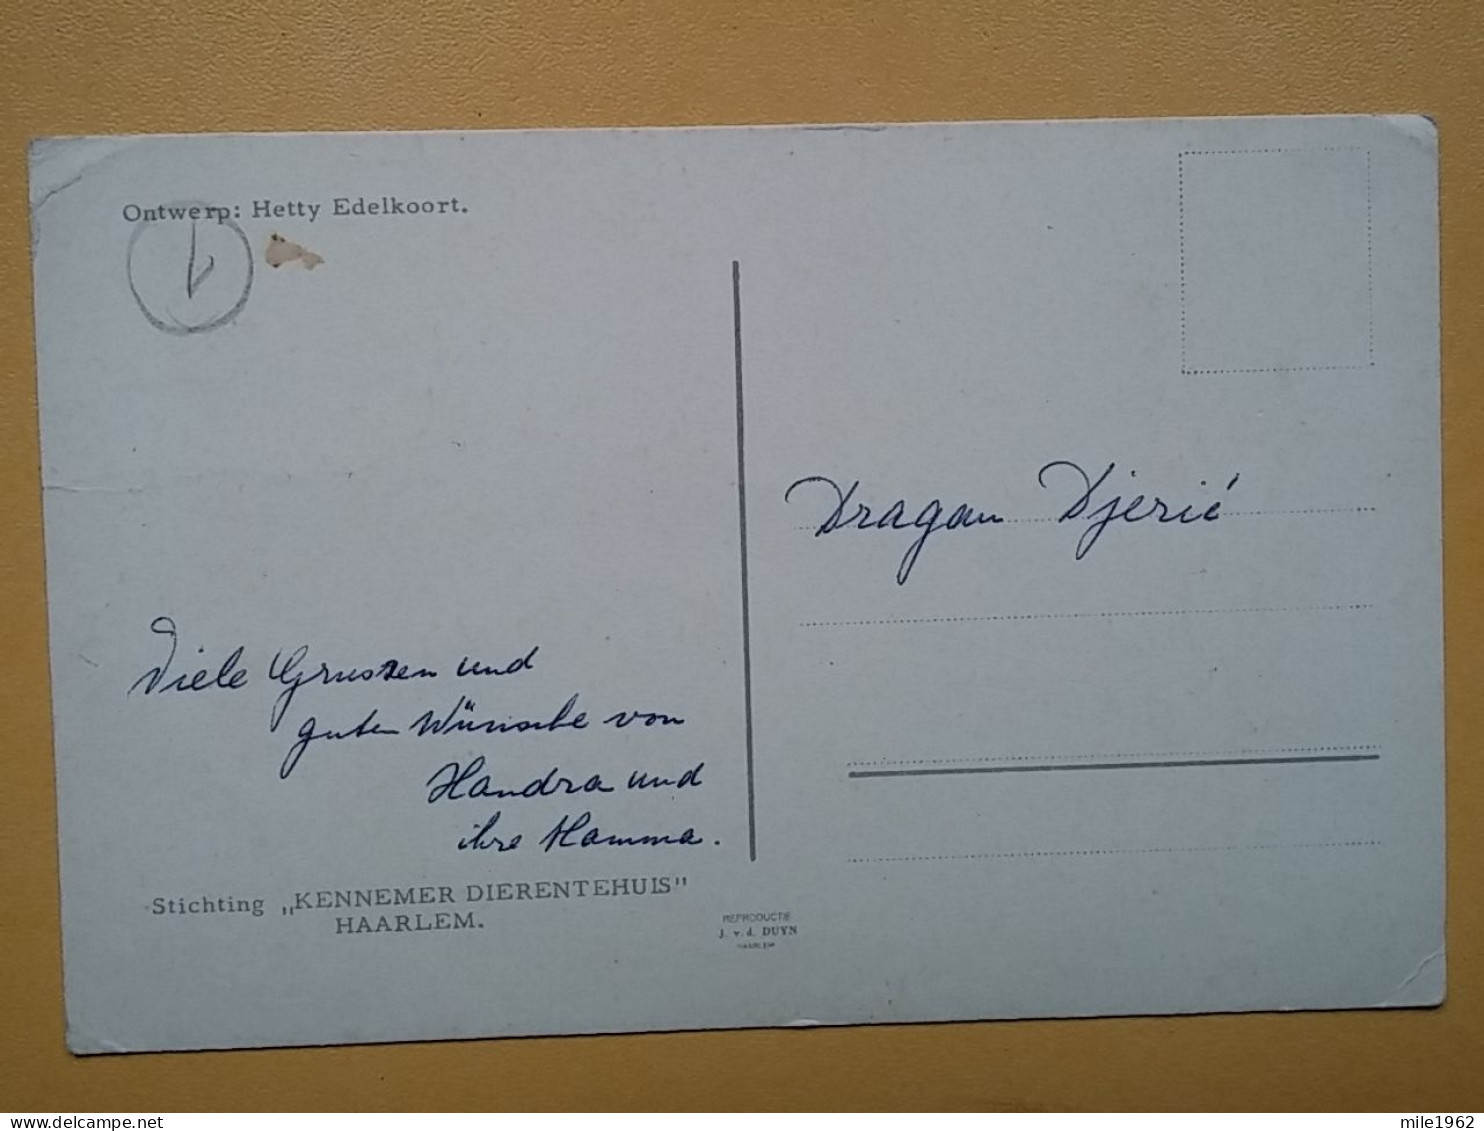 Ontwerp: Hetty Edelkoort.
1
Viele Grussen und
guten Wünsche von
Handra und
ihre Mamma.
Stichting „KENNEMER DIERENTEHUIS"
HAARLEM.
REPRODUCTIE
J. v. d. DUYN
HAARLEM
Dragan Djerić
mile1962